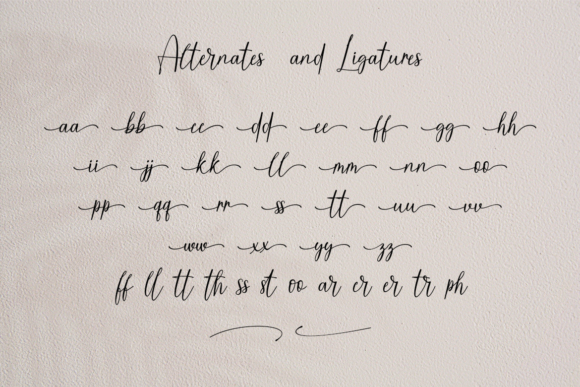 Alternates and Ligatures
aa bb cc dd ee ff gg hh
ii jj kk ll mm nn oo
pp qq rr ss tt uu vv
ww xx yy zz
ff ll tt th ss st oo ar er er tr ph